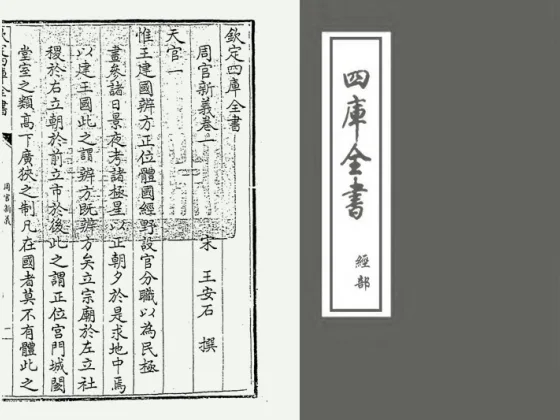 欽定四庫全書
周官新義卷一 宋 王安石 撰
天官一
惟王建國辨方正位體國經野設官分職以為民極
晝參諸日景夜考諸極星以正朝夕於是求地中焉
以建王國此之謂辨方既辨方矣立宗廟於左立社
稷於右立朝於前立市於後此之謂正位宮門城闕
堂室之類高下廣狹之制凡在國者莫不有體此之
欽定四庫全書
周官新義
四庫全書
經部